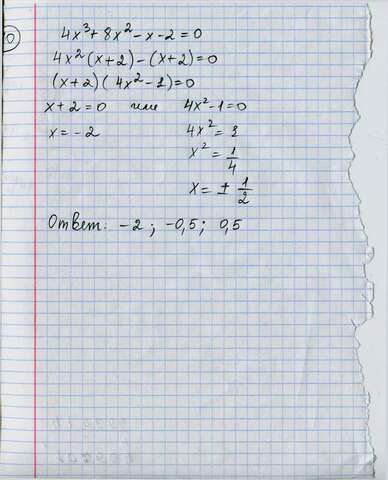 4x³+8x²-x-2=0
4x²(x+2)-(x+2)=0
(x+2)(4x²-1)=0
x+2=0 или 4x²-1=0
x=-2 4x²=1
x²=1/4
x=±1/2
Ответ: -2; -0,5; 0,5